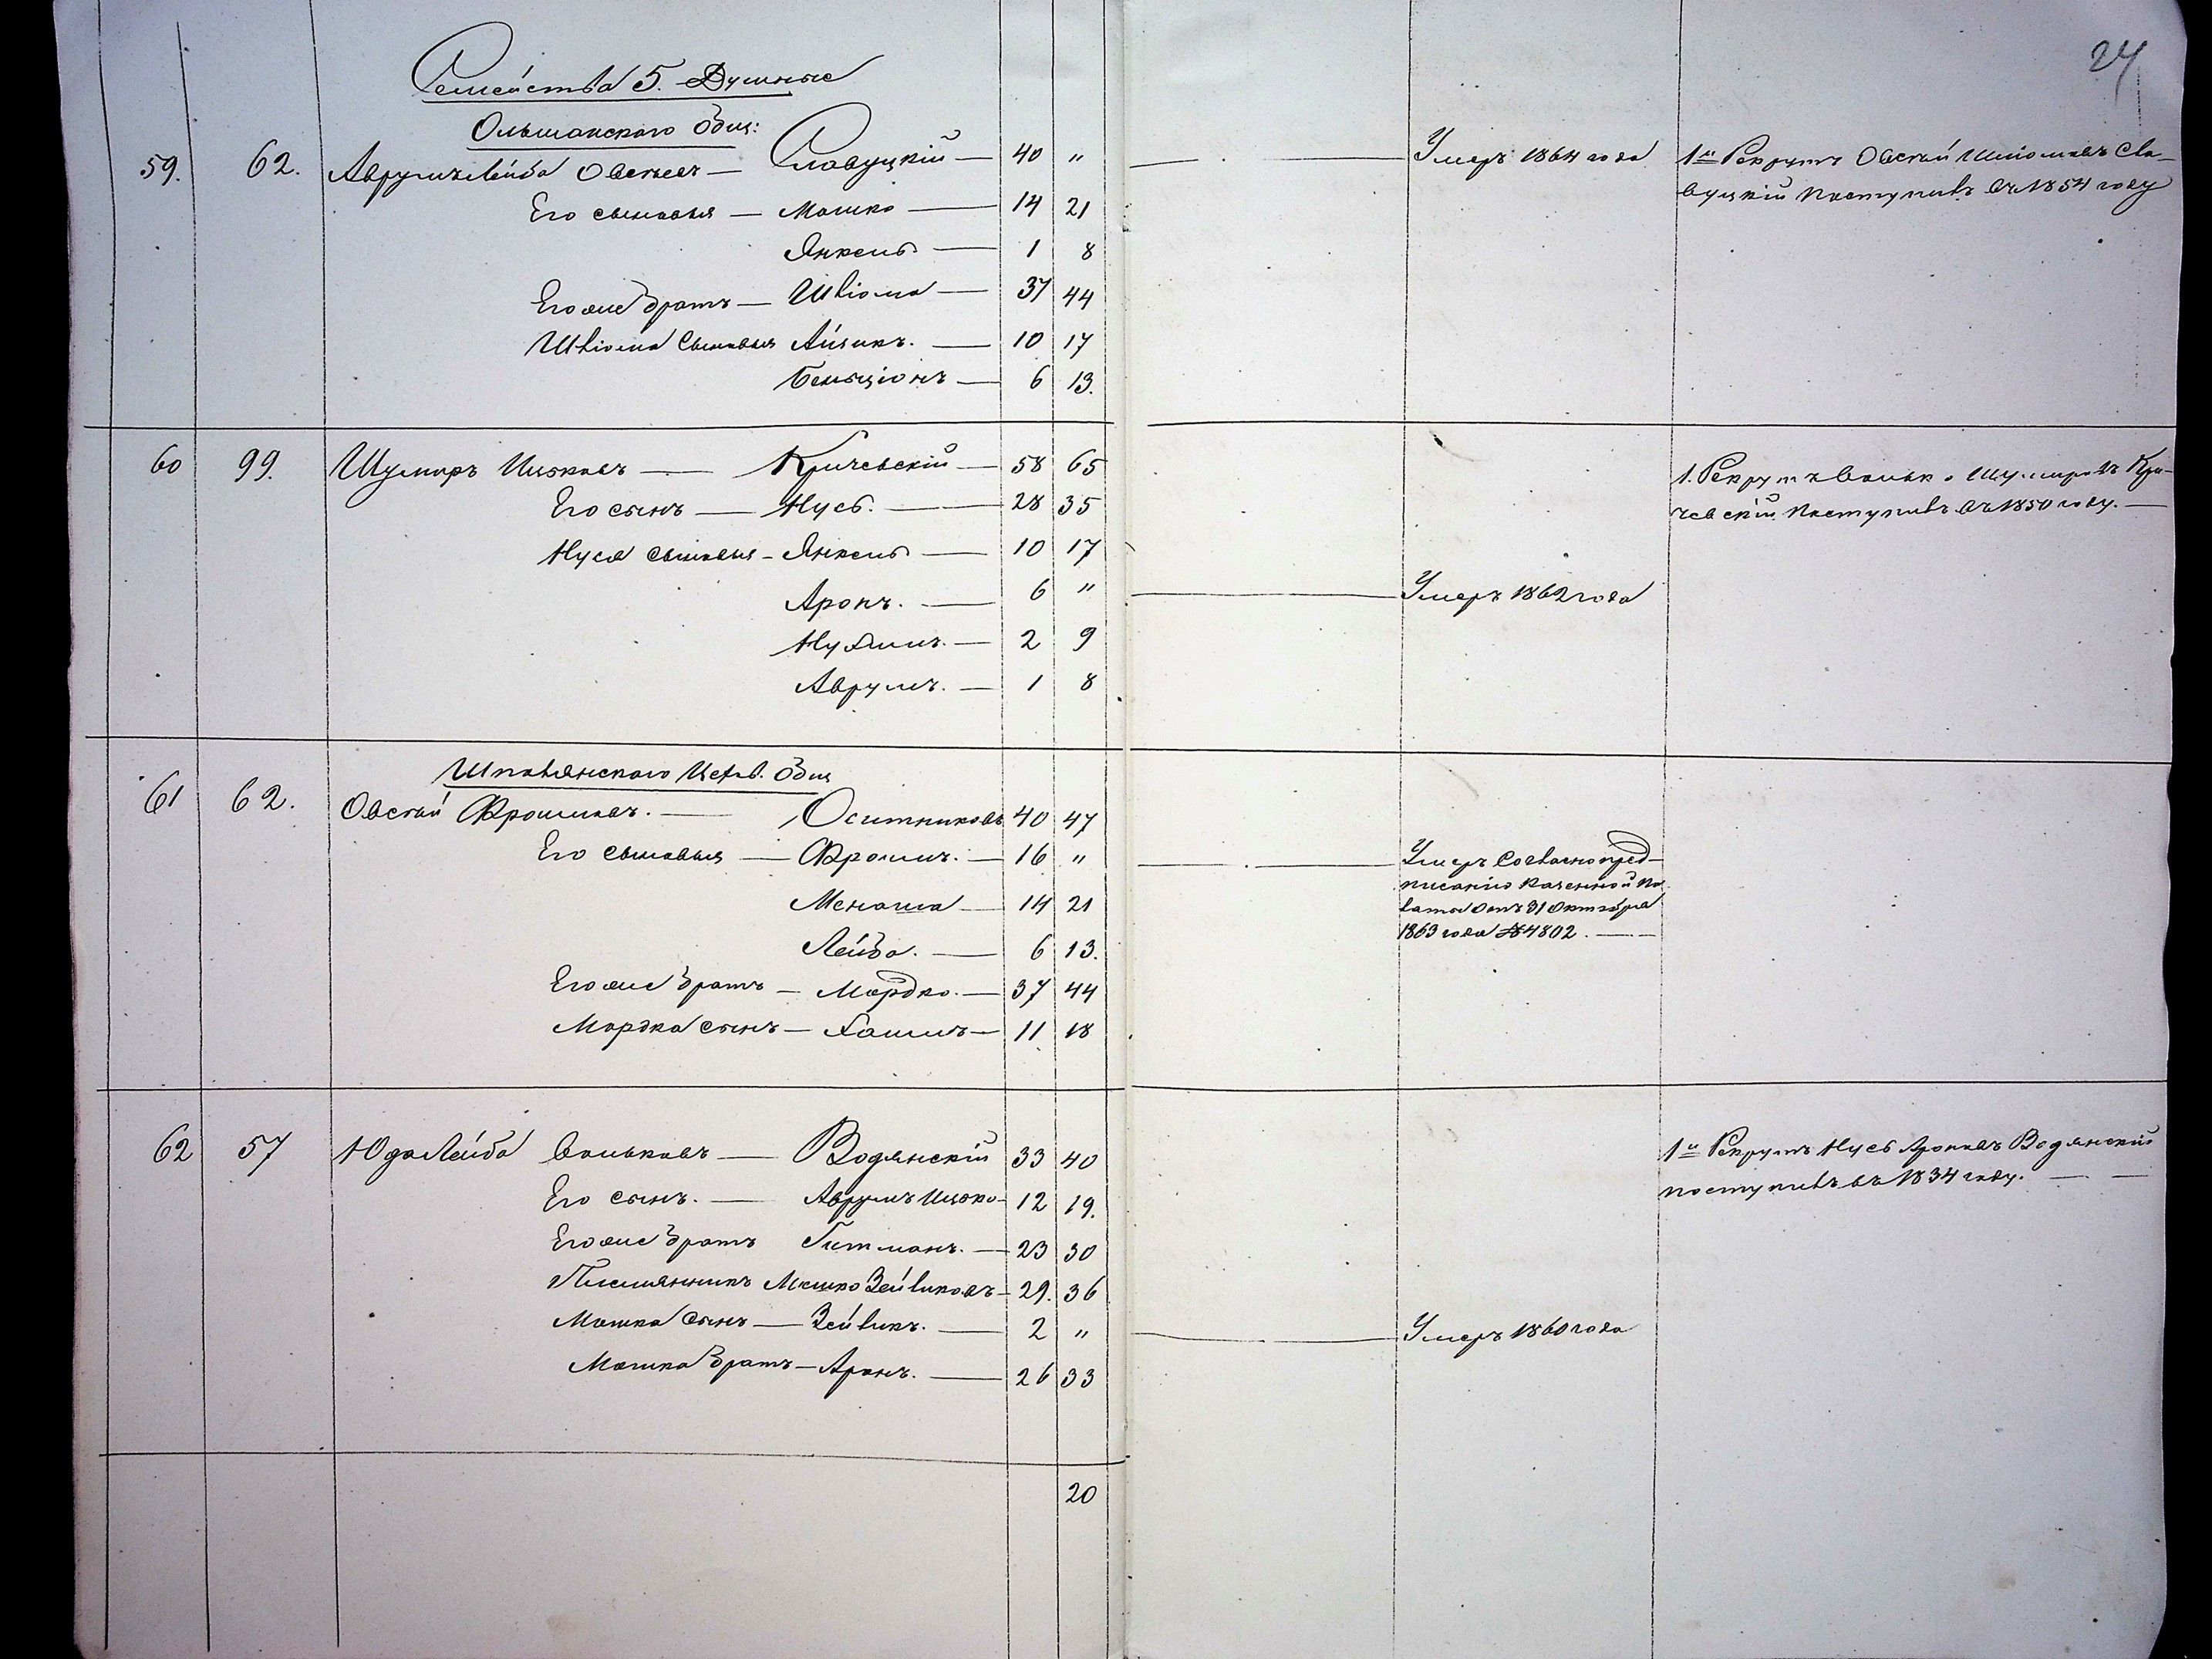 24
Семейства 5. Душные
Ольшанского Общ:
59. 62. Аврумъ Лейба Овсеевъ — Славуцкій — 40 " — Умеръ 1864 года 1й Рекрутъ Овсѣй Шліомовъ Сла-
вуцкій поступилъ въ 1854 году
Его сыновья — Мошко — 14 21
Янкель — 1 8
Его же братъ — Шліома — 37 44
Шліома сыновья Айзикъ. — 10 17
Бенціонъ — 6 13.
60 99. Шумиръ Ицковъ — Кричевскій — 58 65 1. Рекрутъ Волько Шумировъ Кри-
чевскій поступилъ въ 1850 году. —
Его сынъ — Нусь. — 28 35
Нуся сыновья — Янкель — 10 17
Аронъ. — 6 " — Умеръ 1862 года
Нухимъ. — 2 9
Аврумъ. — 1 8
Шполянского Общ
61 62. Овсѣй Фроимовъ. — Оситниковъ 40 47
Его сыновья — Фроимъ. — 16 " — Умеръ согласно пред-
писанію Казенной Па-
латы отъ 31 Октября
1863 года № 4802. —
Менаша — 14 21
Лейба. — 6 13.
Его же братъ — Мордко. — 37 44
Мордка сынъ — Хаимъ — 11 18
62 57 Юда Лейба Вольковъ — Водянскій 33 40 1й Рекрутъ Нусь Ароновъ Водянскій
поступилъ въ 1834 году. —
Его сынъ. — Аврумъ Ицко — 12 19.
Его же братъ Гитманъ. — 23 30
Племянникъ Мошко Зейликовъ — 29. 36
Мошка сынъ — Зейликъ. — 2 " — Умеръ 1860 года
Мошка братъ — Аронъ. — 26 33
20